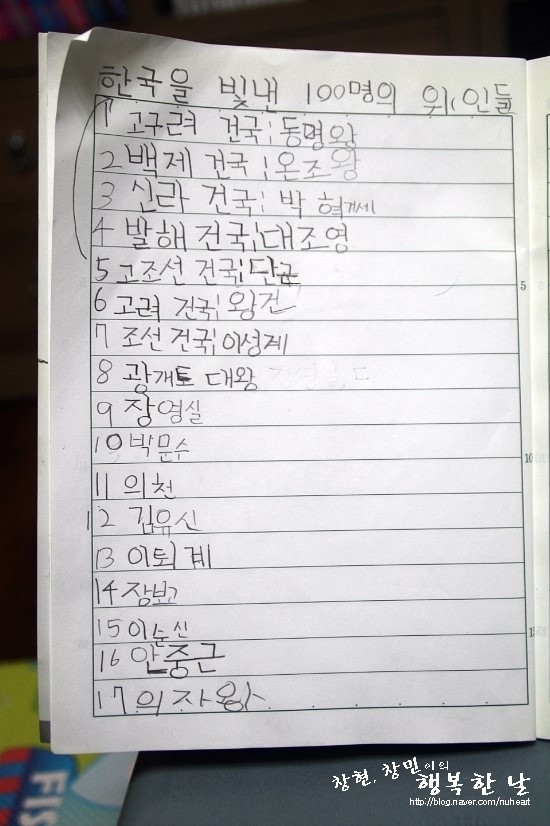 한국을 빛낸 100명의 위인들
1 고구려 건국:동명왕
2 백제 건국:온조왕
3 신라 건국: 박 혁거세
4 발해 건국:대조영
5 고조선 건국:단군
6 고려 건국:왕건
7 조선 건국:이성계
8 광개토 대왕
9 장영실
10 박문수
11 의천
12 김유신
13 이퇴계
14 장보고
15 이순신
16 안중근
17 의자왕
5
10
15
FIS
창현, 창민이의
행복한 날
http://blog.naver.com/nuheart